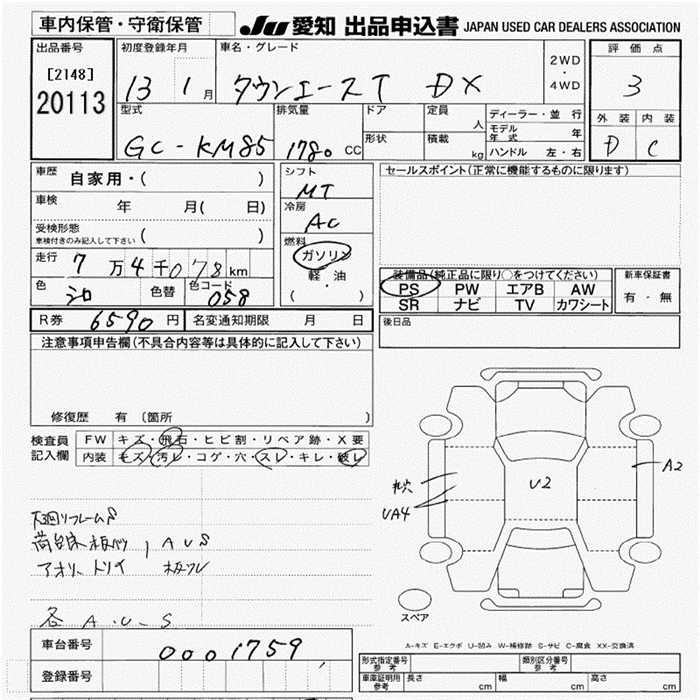 車内保管・守衛保管
JU 愛知 出品申込書 JAPAN USED CAR DEALERS ASSOCIATION
出品番号
[2148]
20113
初度登録年月
13 1月
車名・グレード
タウンエースT DX
2WD
・
4WD
評価点
3
外装 内装
D C
型式
GC-KM85
排気量
1780 CC
ドア
形状
定員
人
積載
kg
ディーラー・並行
モデル年式 年
ハンドル 左・右
車歴
自家用・( )
車検
年 月( 日)
受検形態
車検付きのみ記入して下さい ( )
走行 7万4千078km
色 シロ 色替 色コード 058
シフト
MT
冷房
AC
燃料
ガソリン
・
軽油
( )
セールスポイント(正常に機能するものに限ります)
装備品(純正品に限り○をつけてください)
PS PW エアB AW
SR ナビ TV カワシート
新車保証書
有・無
後日品
R券 6590円 名変通知期限 月 日
注意事項申告欄(不具合内容等は具体的に記入して下さい)
修復歴 有〔箇所 〕
検査員記入欄
FW キズ・飛石・ヒビ割・リペア跡・X要
内装 キズ・汚レ・コゲ・穴・スレ・キレ・破レ
下廻リフレームS
荷台床板ヤブレ, AUS
アオリ、トリイ
各 A.U.S
U2
A2
UA4
スペア
A-キズ E-エクボ U-凹み W-補修跡 S-サビ C-腐食 XX-交換済
車台番号 0001759
登録番号
形式指定番号 参考
類別区分番号 参考
車庫証明用 参考
長さ cm 幅 cm 高さ cm